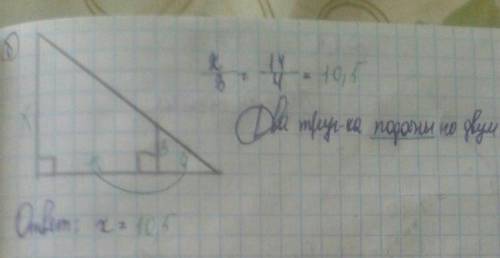 б)
x/3 = 14/4 = 10,5
Два треуг-ка подобны по двум
x
3
4
Ответ: x = 10,5